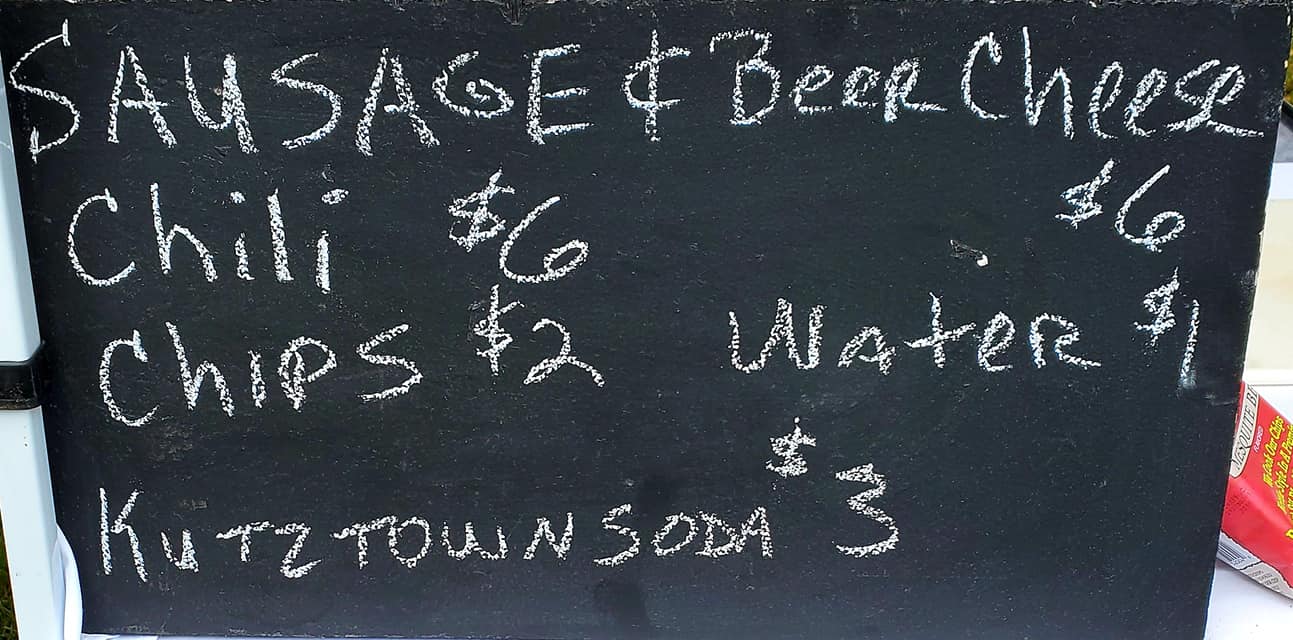 SAUSAGE & Beer Cheese
$6
Chili $6
Chips $2 Water $1
KUTZTOWN SODA $3
MESQUITE B
We Cook Our Chips